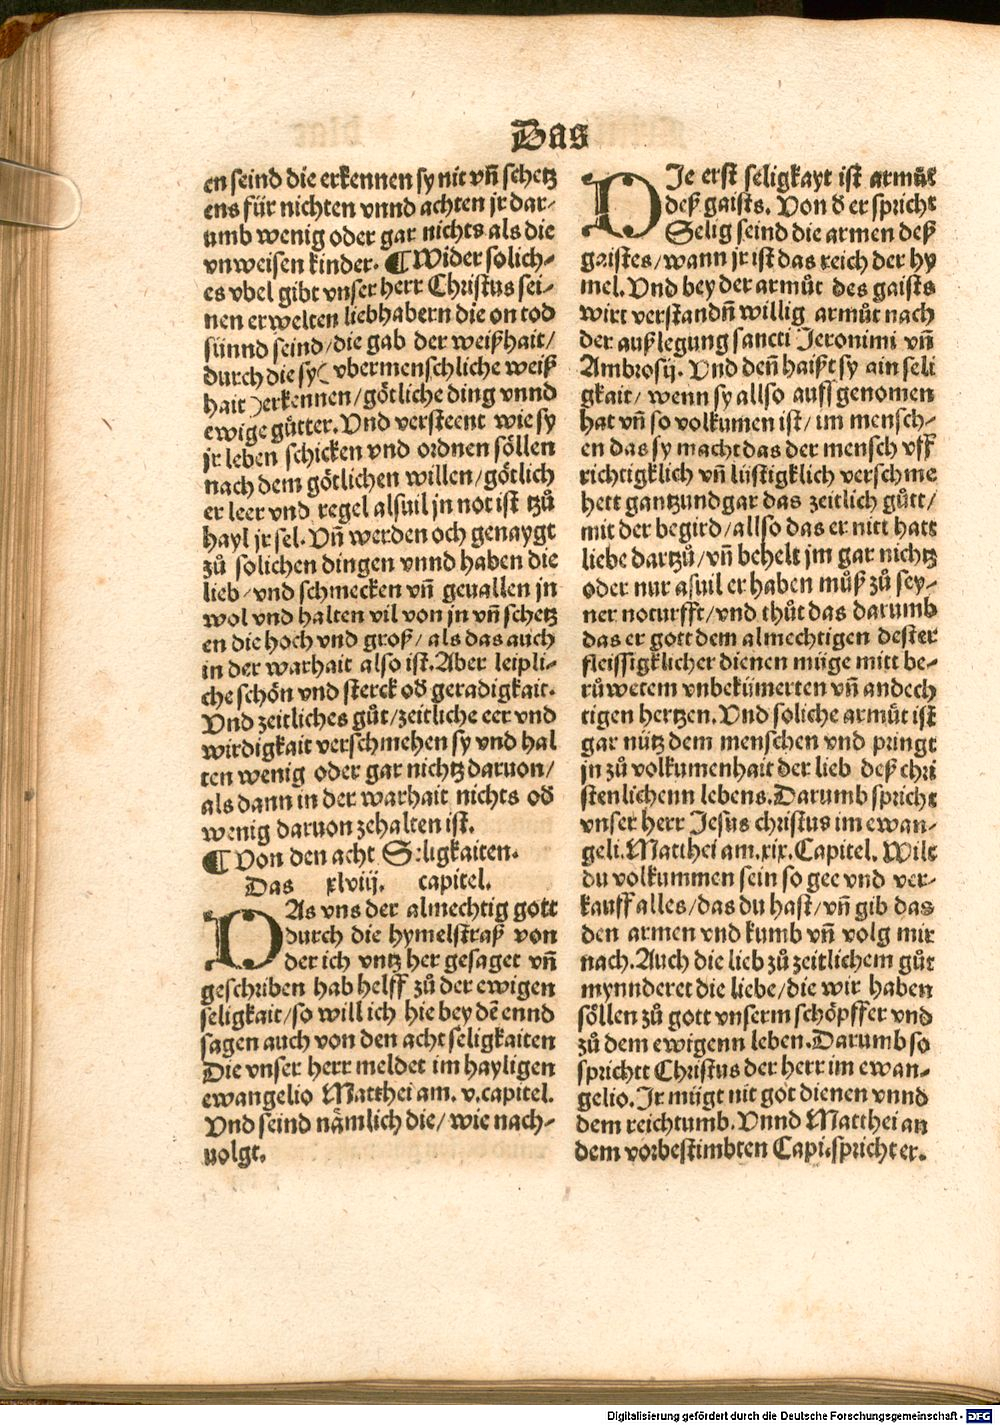 Das
en seind die erkennen sy nit vñ schetz
ens für nichten vnnd achten jr dar-
umb wenig oder gar nichts als die
vnweisen kinder. ¶ Wider solich-
es vbel gibt vnser herr Christus sei-
nen erwelten liebhabern die on tod
sünnd seind/die gab der weißhait/
durch die sy( vbermenschliche weiß
hait )erkennen/götliche ding vnnd
ewige gütter. Vnd versteent wie sy
jr leben schicken vnd ordnen söllen
nach dem götlichen willen/götlich
er leer vnd regel alsuil jn not ist tzů
hayl jr sel. Vñ werden och genaygt
zů solichen dingen vnnd haben die
lieb/vnd schmecken vñ geuallen jn
wol vnd halten vil von jn vñ schetz
en die hoch vnd groß/als das auch
in der warhait also ist. Aber leipli-
che schön vnd sterck oð geradigkait.
Vnd zeitliches gůt/zeitliche eer vnd
wirdigkait verschmehen sy vnd hal
ten wenig oder gar nichtz daruon/
als dann in der warhait nichts oð
wenig daruon zehalten ist.
¶ Von den acht Seligkaiten.
Das xlviij. capitel.
DAs vns der almechtig gott
durch die hymelstraß von
der ich vntz her gesaget vñ
geschriben hab helff zů der ewigen
seligkait/so will ich hie bey dē ennd
sagen auch von den acht seligkaiten
Die vnser herr meldet im hayligen
ewangelio Matthei am. v. capitel.
Vnd seind nämlich die/wie nach-
uolgt.
DIe erst seligkayt ist armůt
deß gaists. Von ð er spricht
Selig seind die armen deß
gaistes/wann jr ist das reich der hy
mel. Vnd bey der armůt des gaists
wirt verstandñ willig armůt nach
der außlegung sancti Jeronimi vñ
Ambrosij. Vnd deñ haißt sy ain seli
gkait/wenn sy allso auff genomen
hat vñ so volkumen ist/im mensch-
en das sy macht das der mensch vff
richtigklich vñ lüstigklich verschme
hett gantzundgar das zeitlich gůtt/
mit der begird/allso das er nitt hatt
liebe dartzů/vñ behelt jm gar nichtz
oder nur asuil er haben můß zů sey-
ner noturfft/vnd thůt das darumb
das er gott dem almechtigen dester
fleissigklicher dienen müge mitt be-
růwetem vnbekümerten vñ andech
tigen hertzen. Vnd soliche armůt ist
gar nütz dem menschen vnd pringt
jn zů volkumenhait der lieb deß chri
stenlichenn lebens. Darumb spricht
vnser herr Jesus christus im ewan-
geli. Matthei am. xix. Capitel. Wilt
du volkummen sein so gee vnd ver-
kauff alles/das du hast/vñ gib das
den armen vnd kumb vñ volg mir
nach. Auch die lieb zů zeitlichem gůt
mynnderet die liebe/die wir haben
söllen zů gott vnserm schöpffer vnd
zů dem ewigenn leben. Darumb so
sprichtt Christus der herr im ewan-
gelio. Jr mügt nit got dienen vnnd
dem reichtumb. Vnnd Matthei an
dem vorbestimbten Capi. spricht er.
Digitalisierung gefördert durch die Deutsche Forschungsgemeinschaft - DFG